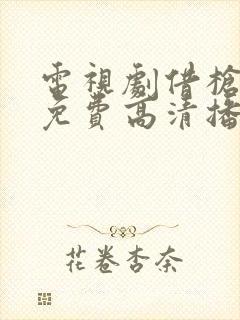 電視劇借槍
免費高清播
花卷杏奈